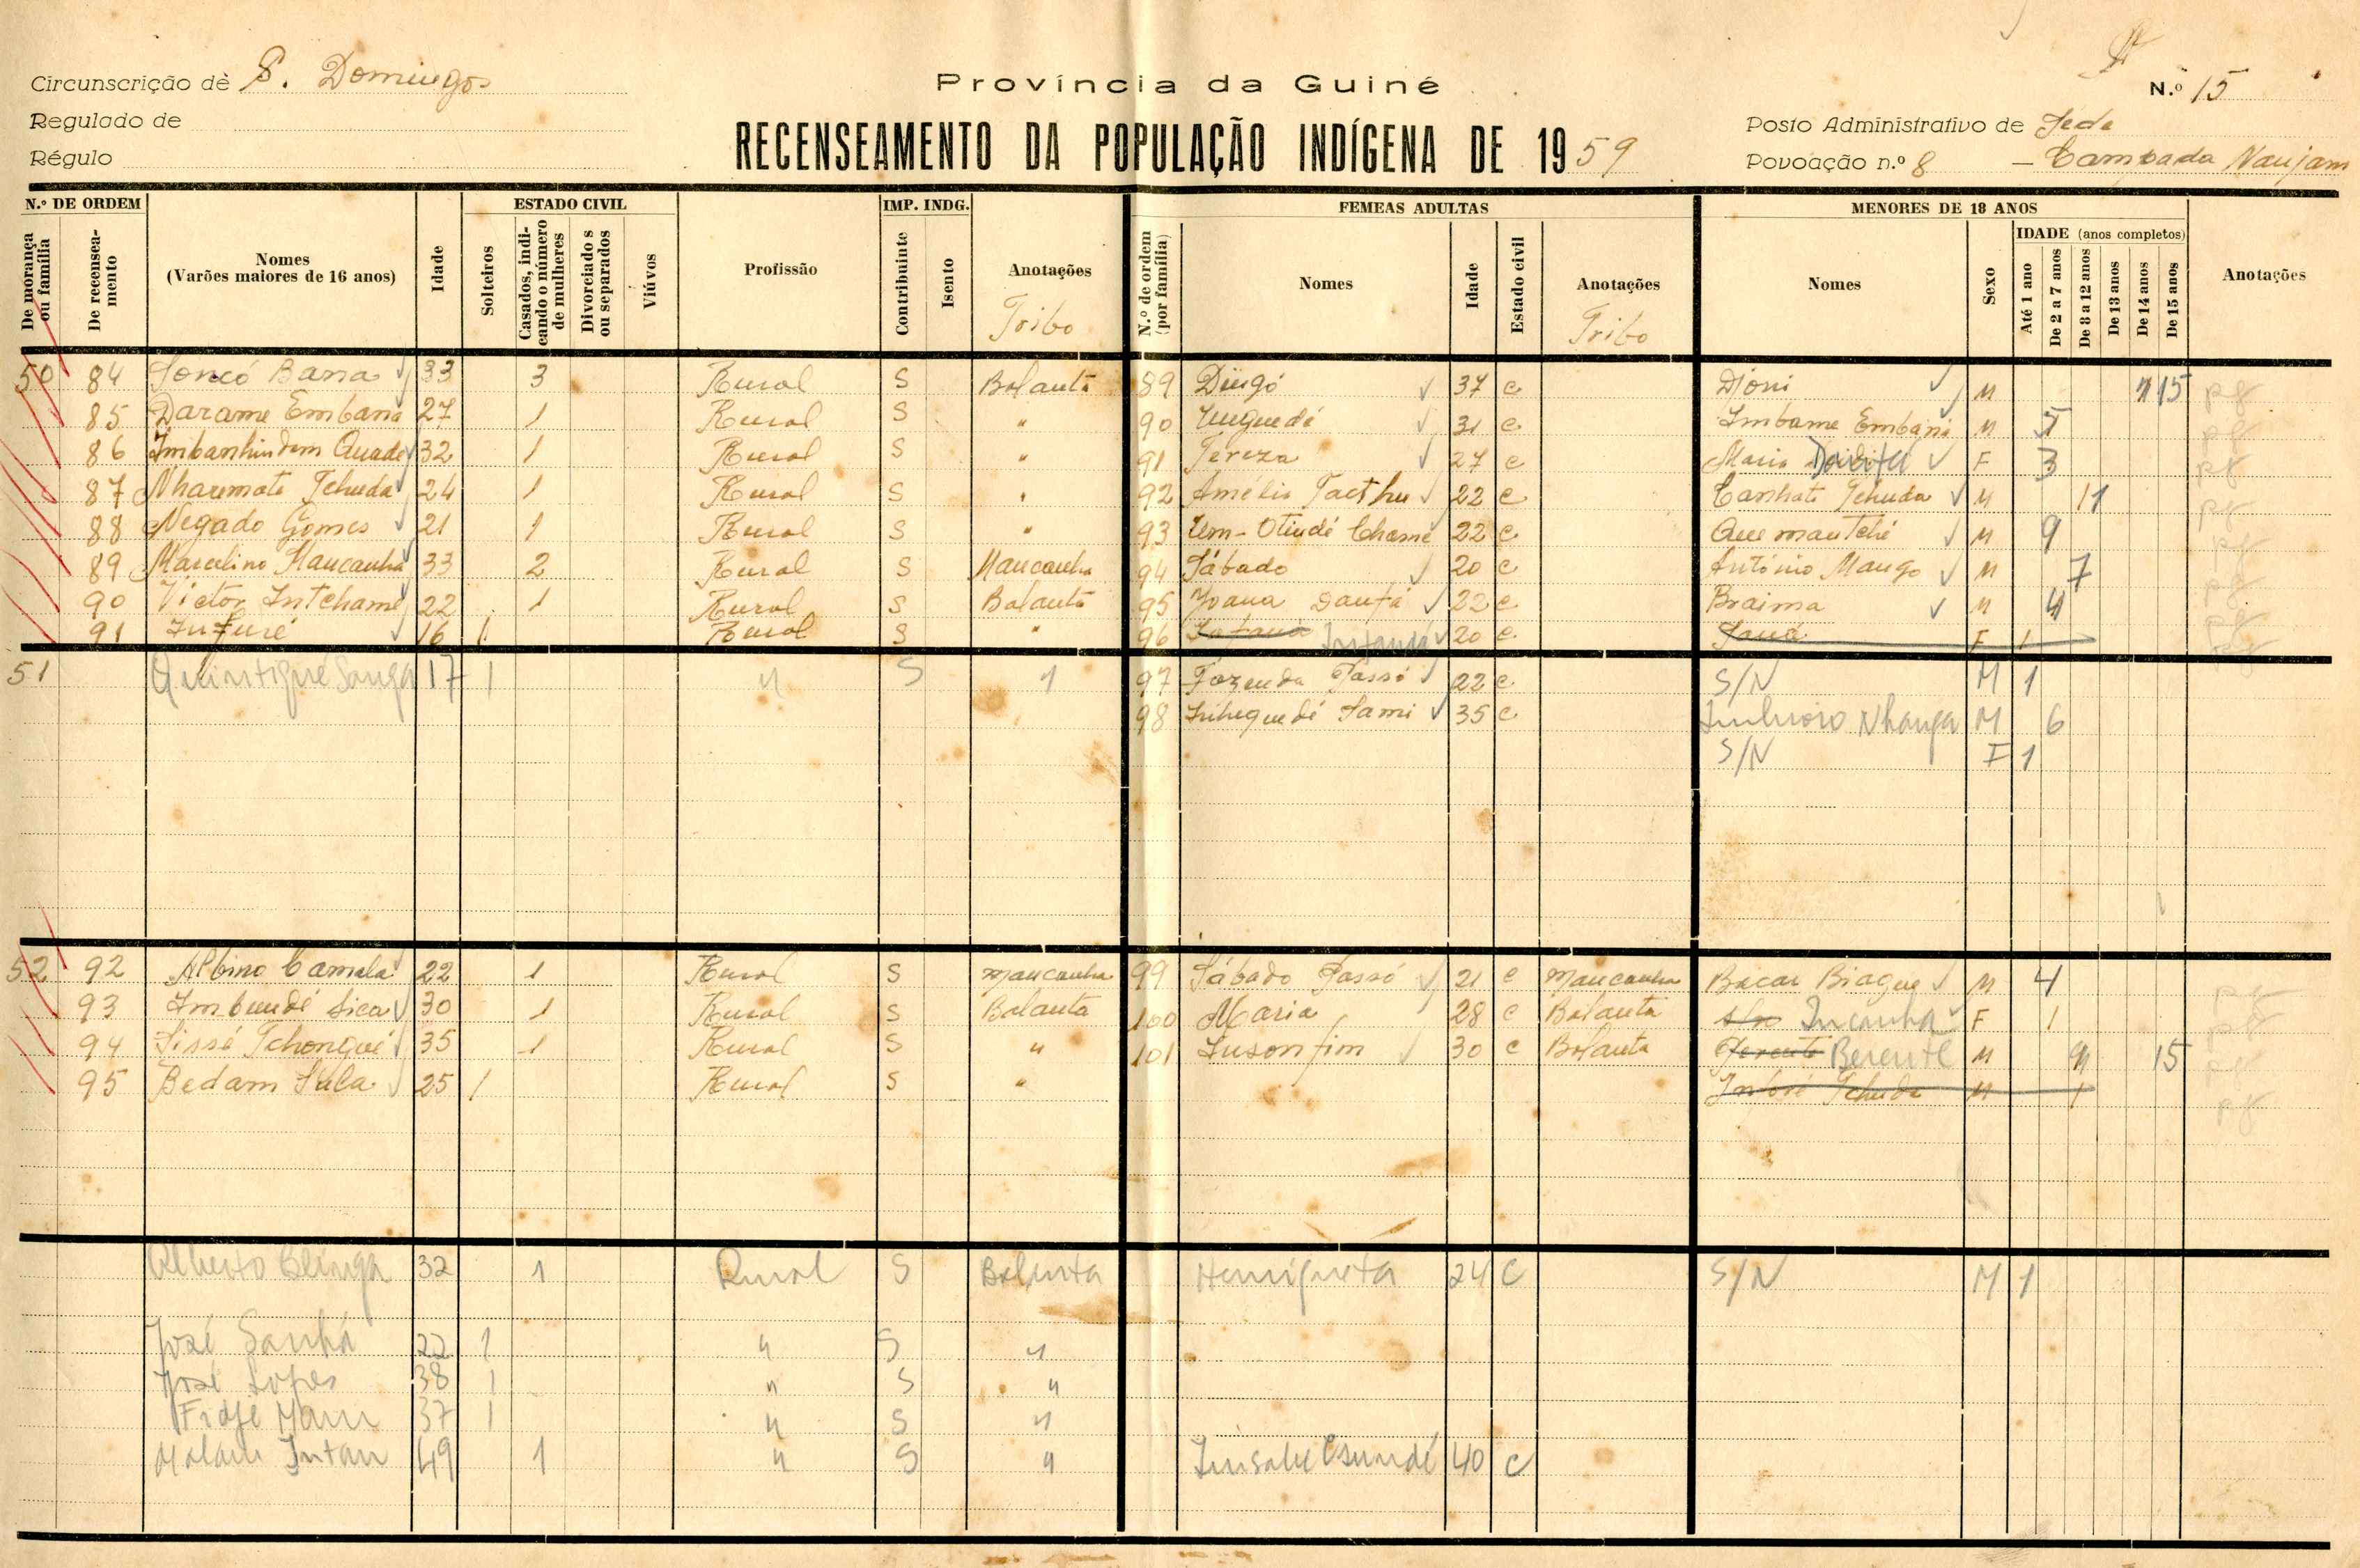 Circunscrição de S. Domingos
Regulado de
Régulo
Província da Guiné
RECENSEAMENTO DA POPULAÇÃO INDÍGENA DE 1959
N.º 15
Posto Administrativo de Sede
Povoação n.º 8 — Campada Naujam
N.º DE ORDEM
De morança ou família
De recenseamento
Nomes
(Varões maiores de 16 anos)
Idade
ESTADO CIVIL
Solteiros
Casados, indicando o número de mulheres
Divorciados ou separados
Viúvos
Profissão
IMP. INDG.
Contribuinte
Isento
Anotações
Tribo
FEMEAS ADULTAS
N.º de ordem (por família)
Nomes
Idade
Estado civil
Anotações
Tribo
MENORES DE 18 ANOS
Nomes
Sexo
IDADE (anos completos)
Até 1 ano
De 2 a 7 anos
De 8 a 12 anos
De 13 anos
De 14 anos
De 15 anos
Anotações
50 84 Soncó Bana 33 3 Rural S Balanta 89 37 c Djoni M 15
85 Darame Embana 27 1 Rural S " 90 31 c Imbame Embana M
86 Imbanhindum Quade 32 1 Rural S " 91 Tereza 27 c Maria F 3
87 Nharemote Tchuda 24 1 Rural S " 92 Amélia 22 c Canhate Tchuda M 11
88 Negado Gomes 21 1 Rural S " 93 Um-Otiudé Chamé 22 c Quemautché M 9
89 Marcelino Mancanha 33 2 Rural S Mancanha 94 Sábado 20 c António Mango M 7
90 Victor Intchame 22 1 Rural S Balanta 95 Joana Daufá 22 c Braima M 4
91 16 1 Rural S " 96 20 c F 1
51 Quintique Sanga 17 1 " S " 97 Fazenda Passó 22 c S/N M 1
98 35 c M 6
S/N F 1
52 92 Albino Camala 22 1 Rural S Mancanha 99 Sábado Passó 21 c Mancanha Bacar Biague M 4
93 Imbundé Sica 30 1 Rural S Balanta 100 Maria 28 c Balanta Incanha F 1
94 Sissé Tchongué 35 1 Rural S " 101 Insonfim 30 c Balanta Berente M 15
95 Bedam Sula 25 1 Rural S " Tchuda M 1
Alberto 32 1 Rural S Balanta 24 C S/N M 1
José Sanhá 22 1 " S "
José Lopes 38 1 " S "
37 1 " S "
Malam Intan 49 1 " S " 40 C